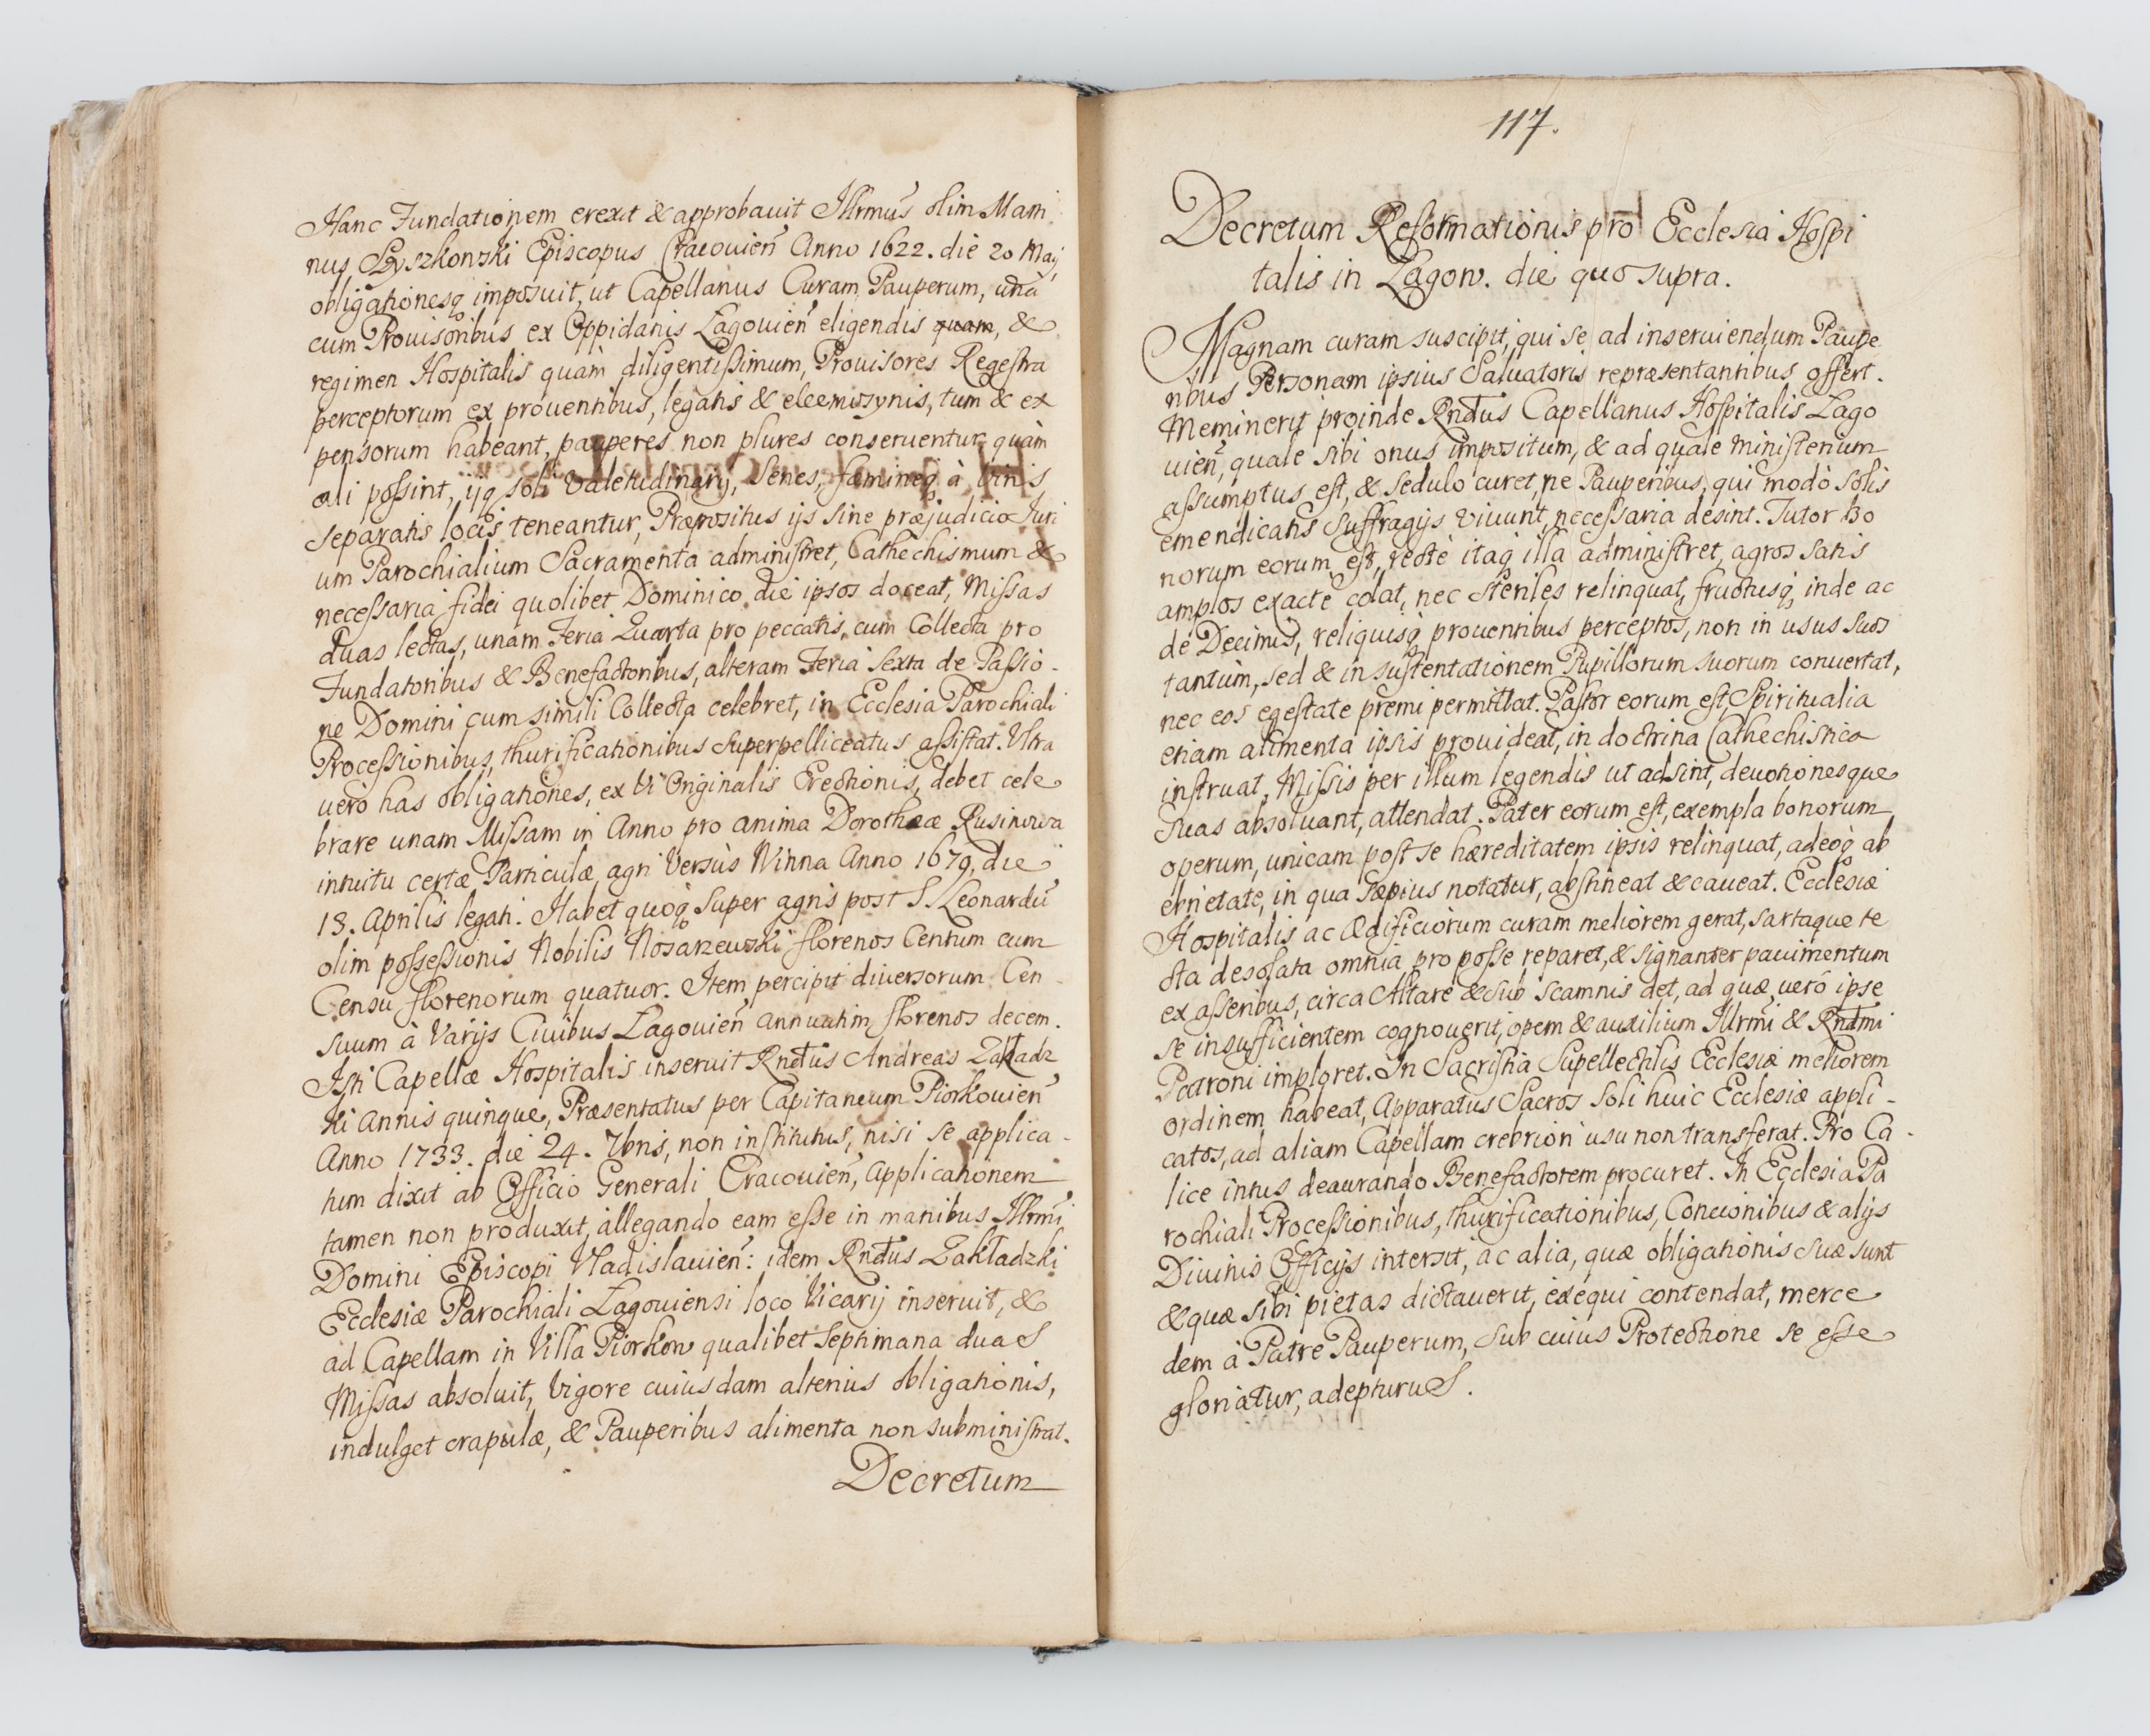 Hanc Fundationem erexit & approbauit Illrmus olim Marti
nus Szyszkowski Episcopus Cracouien Anno 1622. die 20 Maij
obligationesq imposuit, ut Capellanus Curam Pauperum, unà
cum Prouisoribus ex Oppidanis Lagouien eligendis quam, &
regimen Hospitalis quàm diligentissimum, Prouisores Regestra
perceptorum ex prouentibus, legatis & eleemosynis, tum & ex
pensorum habeant, pauperes non plures conseruentur quàm
ali possint, ijq soli Valetudinarij, Senes, fæmineq à Viris
separatis locis teneantur, Præpositus ijs sine præjudicio Juri
um Parochialium Sacramenta administret, Cathechismum &
necessaria fidei quolibet Dominico die ipsos doceat, Missas
duas lectas, unam Feria Quarta pro peccatis, cum Collecta pro
Fundatoribus & Benefactoribus, alteram Feria Sexta de Passio-
ne Domini cum simili Collecta celebret, in Ecclesia Parochiali
Processionibus, thurificationibus Superpelliceatus assistat. Ultra
uerò has obligationes, ex Vi Originalis Erectionis, debet cele
brare unam Missam in Anno pro anima Dorotheæ Rusinowa
intuitu certæ Particulæ agri Versùs Winna Anno 1679, die
13. Aprilis legati. Habet quoq Super agris post S. Leonardu
olim possessionis Nobilis Nosarzewski florenos Centum cum
Censu florenorum quatuor. Item percipit diuersorum Cen
suum à Varijs Ciuibus Lagouien annuatim florenos decem.
Isti Capellæ Hospitalis inseruit Rndus Andreas Zakładz
ki Annis quinque, Præsentatus per Capitaneum Piorkouien
Anno 1733. die 24. 7bris, non institutus, nisi se applica-
tum dixit ab Officio Generali Cracouien, Applicationem
tamen non produxit, allegando eam esse in manibus Illrmi
Domini Episcopi Vladislauien: idem Rndus Zakładzki
Ecclesiæ Parochiali Lagouiensi loco Vicarij inseruit, &
ad Capellam in Villa Piorkow qualibet Septimana duas
Missas absoluit, Vigore cuiusdam alterius obligationis,
indulget crapulæ, & Pauperibus alimenta non subministrat.
Decretum
117.
Decretum Reformationis pro Ecclesia Hospi
talis in Lagow. die quo supra.
Magnam curam suscipit, qui se ad inseruiendum Paupe
ribus Personam ipsius Saluatoris repræsentantibus offert.
Meminerit proinde Rndus Capellanus Hospitalis Lago
uien, quale sibi onus impositum, & ad quale ministerium
assumptus est, & sedulo curet, ne Pauperibus, qui modò solis
emendicatis Suffragijs Viuunt, necessaria desint. Tutor Bo
norum eorum est, rectè itaq illa administret, agros satis
amplos exactè colat, nec steriles relinquat, fructusq inde ac
de Decimis, reliquisq prouentibus perceptos, non in usus suos
tantùm, sed & in sustentationem Pupillorum suorum conuertat,
nec eos egestate premi permittat. Pastor eorum est, Spiritualia
etiam alimenta ipsis prouideat, in doctrina Cathechistica
instruat, Missis per illum legendis ut adsint, deuotionesque
suas absoluant, attendat. Pater eorum est, exempla bonorum
operum, unicam post se hæreditatem ipsis relinquat, adeòq ab
ebrietate, in qua sæpius notatur, abstineat & caueat. Ecclesiæ
Hospitalis ac Ædificiorum curam meliorem gerat, sartaque te
cta desolata omnia pro posse reparet, & signanter pauimentum
ex asseribus, circa Altare & sub scamnis det, ad quæ uerò ipse
se insufficientem cognouerit, opem & auxilium Illrmi & Rndmi
Patroni imploret. In Sacristia Supellectilis Ecclesiæ meliorem
ordinem habeat, Apparatus Sacros soli huic Ecclesiæ appli-
catos, ad aliam Capellam crebriori usu non transferat. Pro Ca-
lice intus deaurando Benefactorem procuret. In Ecclesia Pa
rochiali Processionibus, thurificationibus, Concionibus & alijs
Diuinis Officijs intersit, ac alia, quæ obligationis suæ sunt
& quæ sibi pietas dictauerit, exequi contendat, merce
dem à Patre Pauperum, sub cuius Protectione se esse
gloriatur, adepturus.